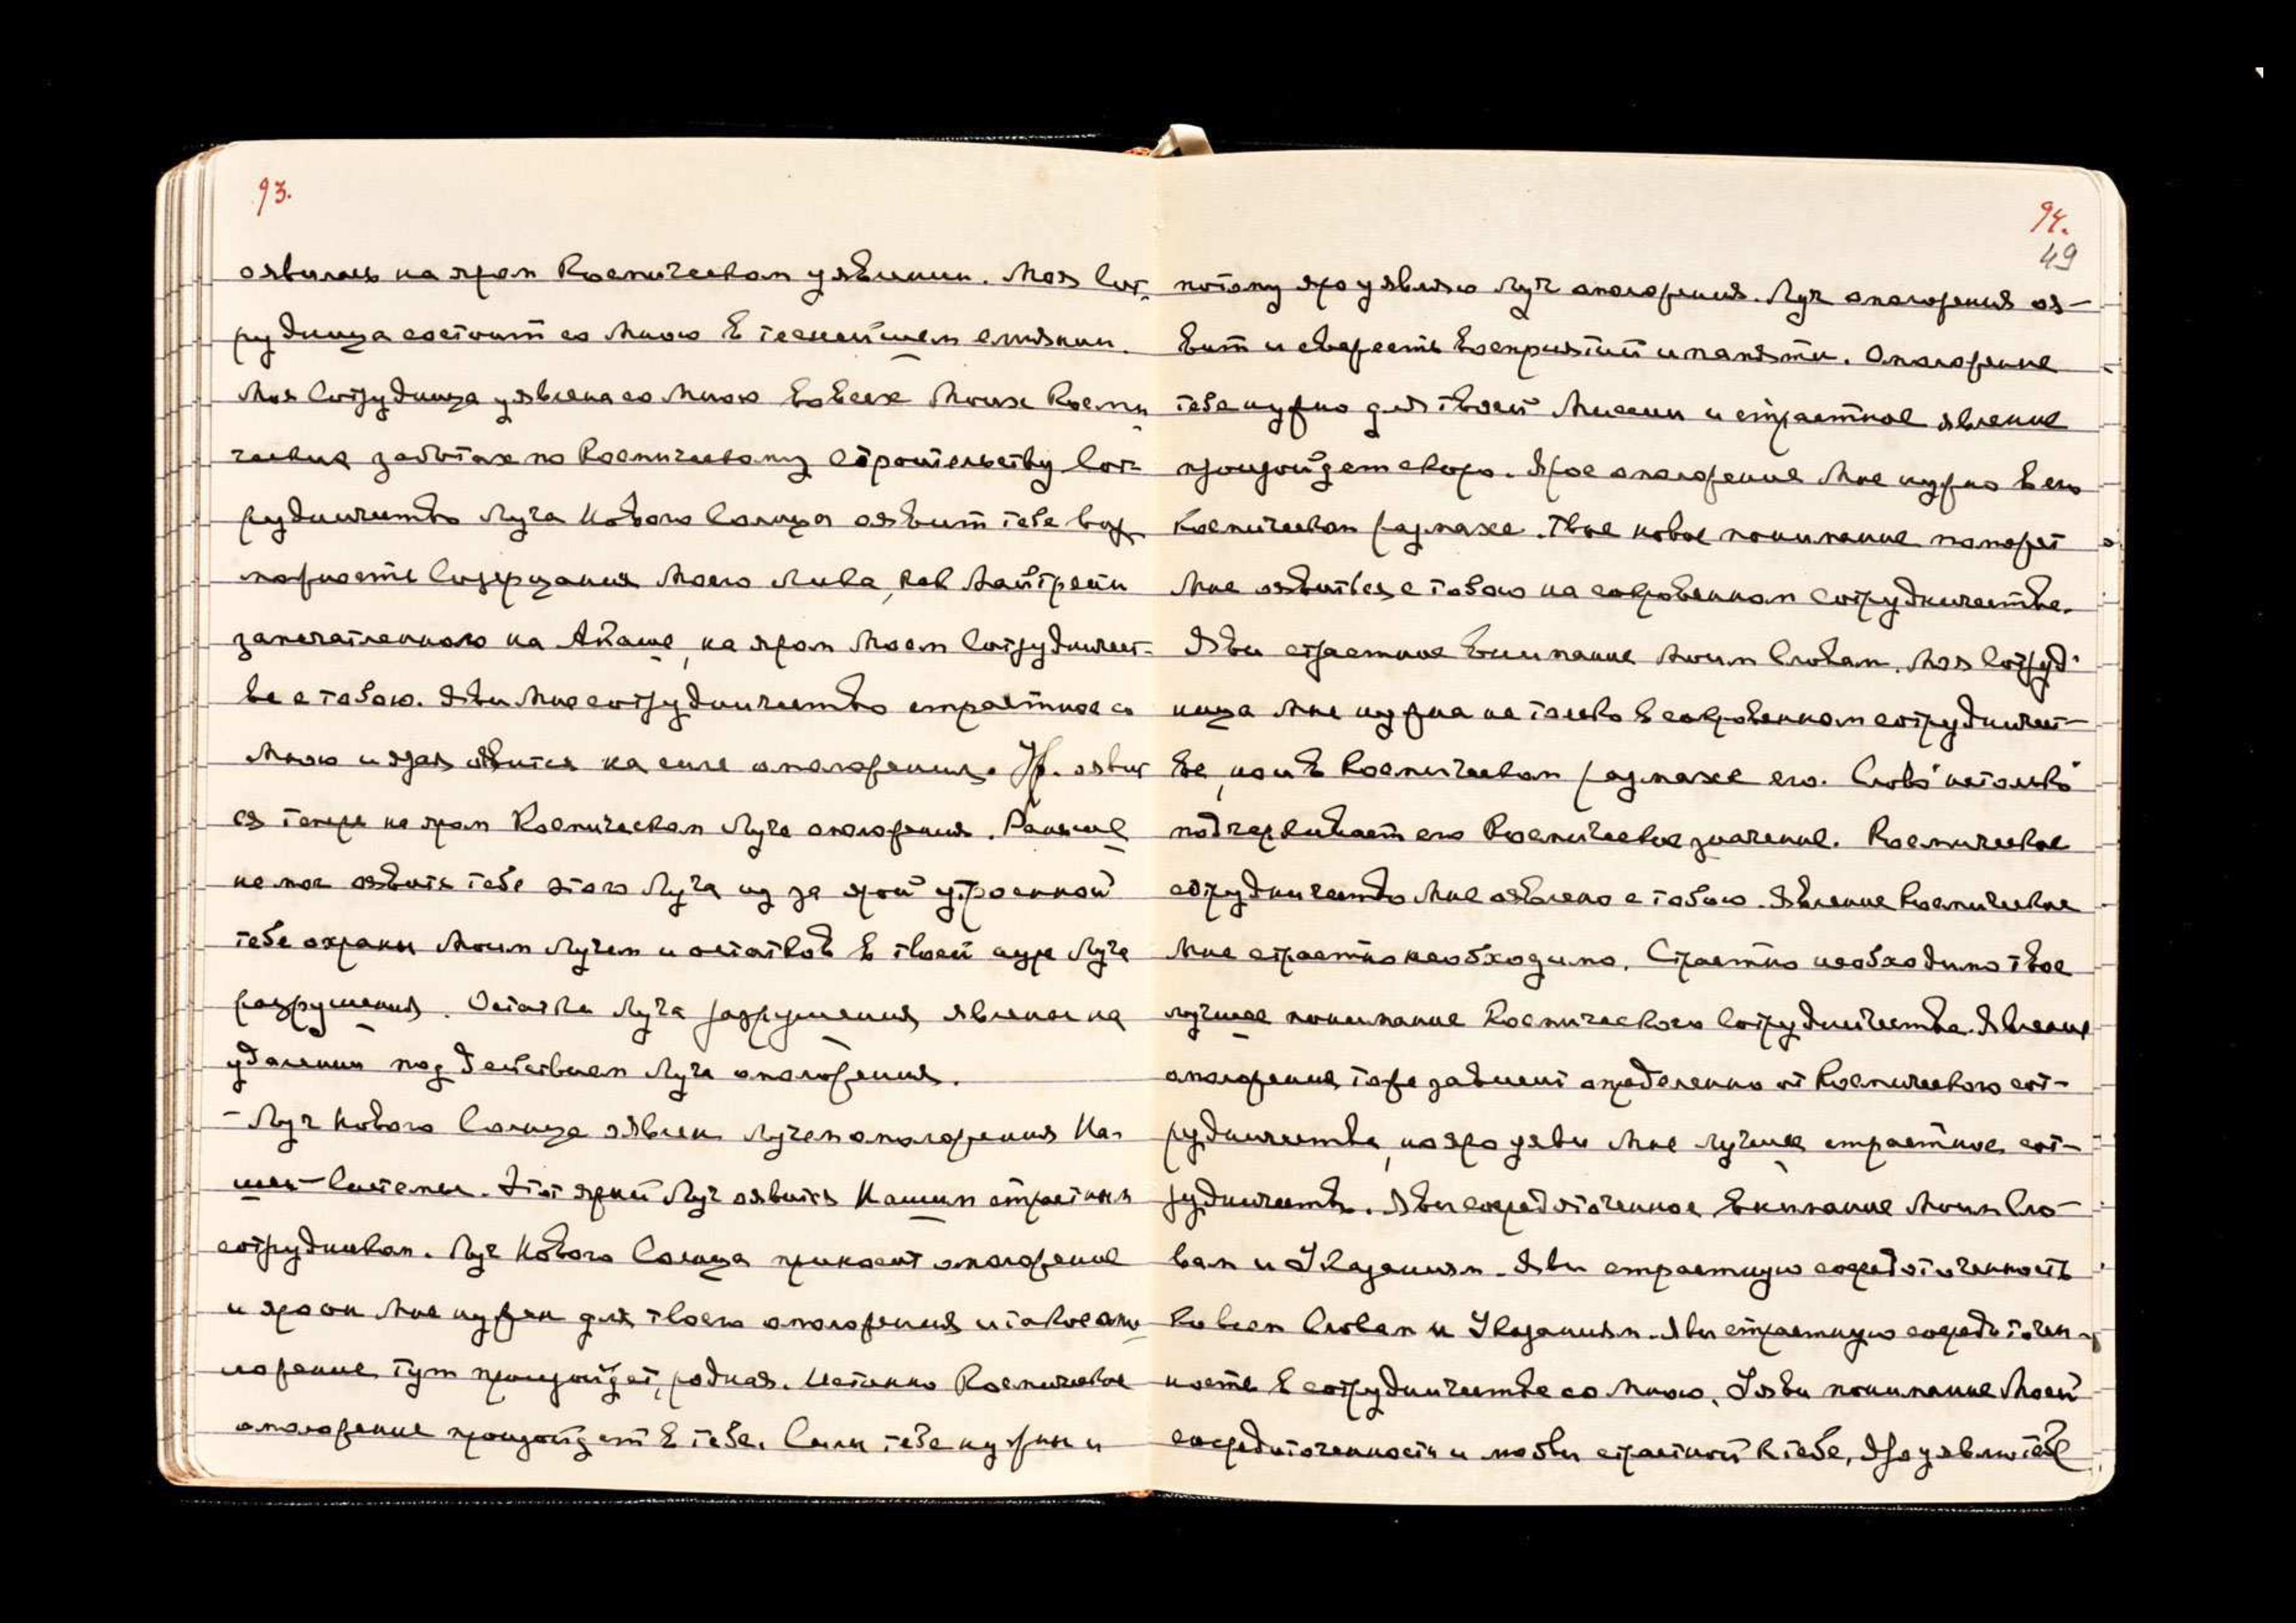 93.
оявилась на яром Космическом уявлении. Моя Сот-
рудница состоит со Мною в теснейшем слиянии.
Моя Сотрудница уявлена со Мною во всех Моих Косми
ческих заботах по Космическому строительству. Сот-
рудничество Луча Нового Солнца оявит тебе воз
можность Созерцания Моего Лика, как Майтрейи
запечатленного на Акаше, на яром Моем Сотрудничест-
ве с тобою. Яви Мне сотрудничество страстное со
Мною и явится на силе омоложения. Ур. оявит
ся теперь на яром Космическом Луче омоложения. Раньше
не мог оявить тебе этого Луча из за ярой утроенной
тебе охраны Моим Лучем и остатков в твоей ауре Луча
разрушения. Остатки Луча разрушения явленные на
удалении под действием Луча омоложения.
- Луч Нового Солнца явлен Лучем омоложения На-
шей Системы. Этот яркий Луч оявится Нашим страстным
сотрудникам. Луч Нового Солнца приносит омоложение
и яро он Мне нужен для твоего омоложения и такое омо
ложение тут произойдет, родная. Истинно Космическое
омоложение произойдет в тебе. Силы тебе нужны и
94.
49
потому яро уявляю Луч омоложения. Луч омоложения оя-
вит и свежесть восприятий и памяти. Омоложение
тебе нужно для твоей Миссии и страстное явление
произойдет скоро. Ярое омоложение Мне нужно в его
Космическом размахе. Твое новое понимание поможет
Мне оявиться с тобою на сокровенном сотрудничестве.
Яви страстное внимание Моим Словам. Моя Сотруд-
ница Мне нужна не только в сокровенном сотрудничест-
ве, но и в Космическом размахе его. Слово "не только"
подчеркивает его Космическое значение. Космическое
сотрудничество Мне явлено с тобою. Явление Космическое
Мне страстно необходимо. Страстно необходимо твое
лучшее понимание Космического Сотрудничества. Явление
омоложения тоже зависит определенно от Космического сот-
рудничества, но яро уяви Мне лучшее страстное сот-
рудничество. Яви сосредоточенное внимание Моим Сло-
вам и Указаниям. Яви страстную сосредоточенность
ко всем Словам и Указаниям. Яви страстную сосредоточен-
ность в сотрудничестве со Мною. Уяви понимание Моей
сосредоточенности и любви страстной к тебе, Яро уявлю тебе